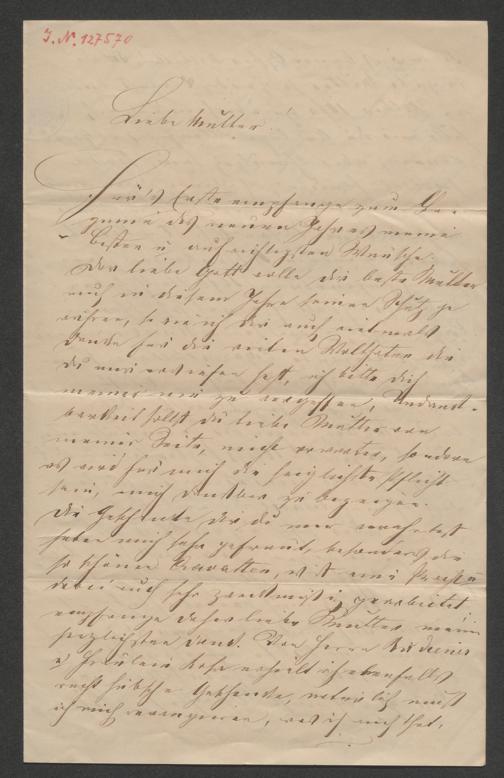 I. N. 127570
Liebe Mutter!
Für's Erste empfange zum Be-
ginne des neuen Jahres meine
besten u aufrichtigsten Wünsche.
Der liebe Gott wolle dir beste Mutter
auch in diesem Jahre seinen Schutz ge
währen, so wie ich dir auch vielmals
danke für die vielen Wohlthaten die
du mir erwiesen hast, ich bitte dich
meiner nie zu vergessen, Undank-
barkeit sollst du liebe Mutter von
meiner Seite, nicht erwarten, sondern
es wird für mich die heiligste Pflicht
sein, mich dankbar zu bezeigen.
Die Geschenke die du mir
haben mich sehr gefreut, besonders die
so schönen Cravatten, ist eine
dabei auch sehr zweckmäßig gearbeitet
empfange daher liebe Mutter meinen
herzlichsten Dank. Von Herrn
u Fräulein erhielt ich ebenfalls
recht hübsche Geschenke, natürlich muß
ich mich revangieren, was ich auch that.